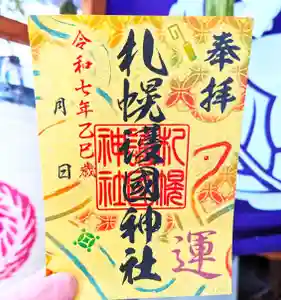 奉拝
札幌護國神社
札幌護國神社
令和七年乙巳歳
月 日
運